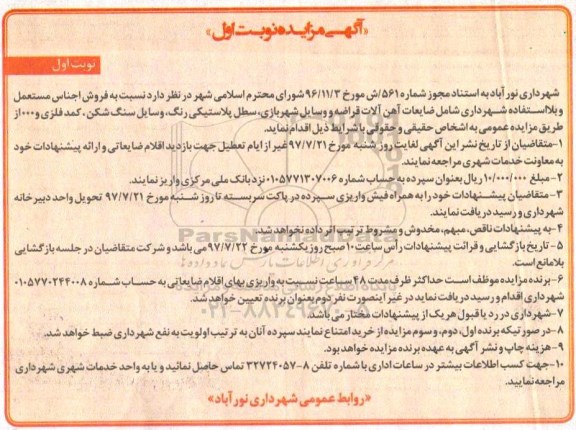 «آگهی مزایده نوبت اول»
نوبت اول
شهرداری نور آباد به استناد مجوز شماره ۵۶۱/ش مورخ ۹۶/۱۱/۳ شورای محترم اسلامی شهر در نظر دارد نسبت به فروش اجناس مستعمل
و بلااستفاده شهرداری شامل ضایعات آهن آلات قراضه و وسایل شهربازی، سطل پلاستیکی رنگ، وسایل سنگ شکن، کمد فلزی و ... از
طریق مزایده عمومی به اشخاص حقیقی و حقوقی با شرایط ذیل اقدام نماید.
۱- متقاضیان از تاریخ نشر این آگهی لغایت روز شنبه مورخ ۹۷/۷/۲۱ غیر از ایام تعطیل جهت بازدید اقلام ضایعاتی و ارائه پیشنهادات خود
به معاونت خدمات شهری مراجعه نمایند.
۲- مبلغ ۱۰/۰۰۰/۰۰۰ ریال بعنوان سپرده به حساب شماره ۰۱۰۵۷۷۱۳۰۷۰۰۶ نزد بانک ملی مرکزی واریز نمایند.
۳- متقاضیان پیشنهادات خود را به همراه فیش واریزی سپرده در پاکت سربسته تا روز شنبه مورخ ۹۷/۷/۲۱ تحویل واحد دبیرخانه
شهرداری و رسید دریافت نمایند.
۴- به پیشنهادات ناقص، مبهم، مخدوش و مشروط ترتیب اثر داده نخواهد شد.
۵- تاریخ بازگشایی و قرائت پیشنهادات رأس ساعت ۱۰ صبح روز یکشنبه مورخ ۹۷/۷/۲۲ می باشد و شرکت متقاضیان در جلسه بازگشایی
بلامانع است.
۶- برنده مزایده موظف است حداکثر ظرف مدت ۴۸ ساعت نسبت به واریزی بهای اقلام ضایعاتی به حساب شماره ۰۱۰۵۷۷۰۲۴۴۰۰۸
شهرداری اقدام و رسید دریافت نماید در غیر اینصورت نفر دوم بعنوان برنده تعیین خواهد شد.
۷- شهرداری در رد یا قبول هر یک از پیشنهادات مختار می باشد.
۸- در صورتیکه برنده اول، دوم، و سوم مزایده از خرید امتناع نمایند سپرده آنان به ترتیب اولویت به نفع شهرداری ضبط خواهد شد.
۹- هزینه چاپ و نشر آگهی به عهده برنده مزایده خواهد بود.
۱۰- جهت کسب اطلاعات بیشتر در ساعات اداری با شماره تلفن ۸-۳۲۷۲۴۰۵۷ تماس حاصل نمائید و یا به واحد خدمات شهری شهرداری
مراجعه نمایید.
«روابط عمومی شهرداری نور آباد»